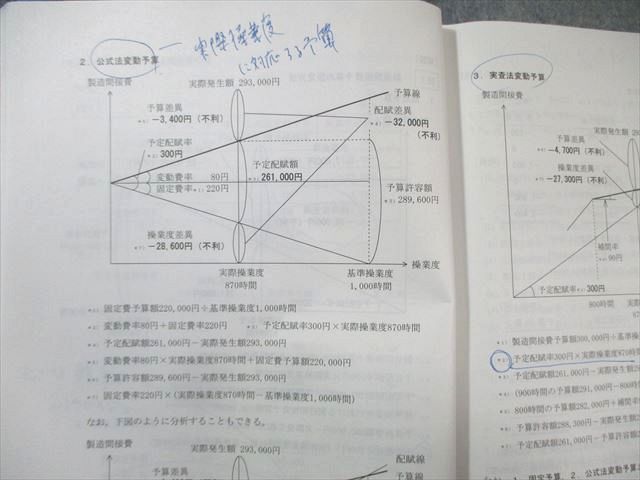 2. 公式法変動予算 ― 実際操業度
に対応する予算
製造間接費
実際発生額 293,000円
予算線
予算差異
*5) －3,400円 (不利)
配賦差異
*3) －32,000円
(不利)
予定配賦率
300円
変動費率 80円
固定費率 220円
予定配賦額
261,000円
予算許容額
289,600円
操業度差異
－28,600円 (不利)
操業度
実際操業度
870時間
基準操業度
1,000時間
固定費予算額220,000円÷基準操業度1,000時間
変動費率80円＋固定費率220円
予定配賦率300円×実際操業度870時間
予定配賦額261,000円－実際発生額293,000円
変動費率80円×実際操業度870時間＋固定費予算額220,000円
予算許容額289,600円－実際発生額293,000円
固定費率220円×(実際操業度870時間－基準操業度1,000時間)
なお，下図のように分析することもできる。
製造間接費
実際発生額 293,000円
配賦線
予算差異
予算線
3. 実査法変動予算
製造間接費
実際発生額 29
予算差異
－4,700円 (不利)
操業度差異
－27,300円 (不利)
補間率
90円
予定配賦率
300円
800時間
製造間接費予算額300,000円÷基準
予定配賦率300円×実際操業度870
予定配賦額261,000円－実際発生額29
(900時間の予算額291,000円－800時
800時間の予算額282,000円＋補間率
予算許容額288,300円－実際発生額
予定配賦額261,000円－予算許容額2
1. 固定予算，2. 公式法変動予算